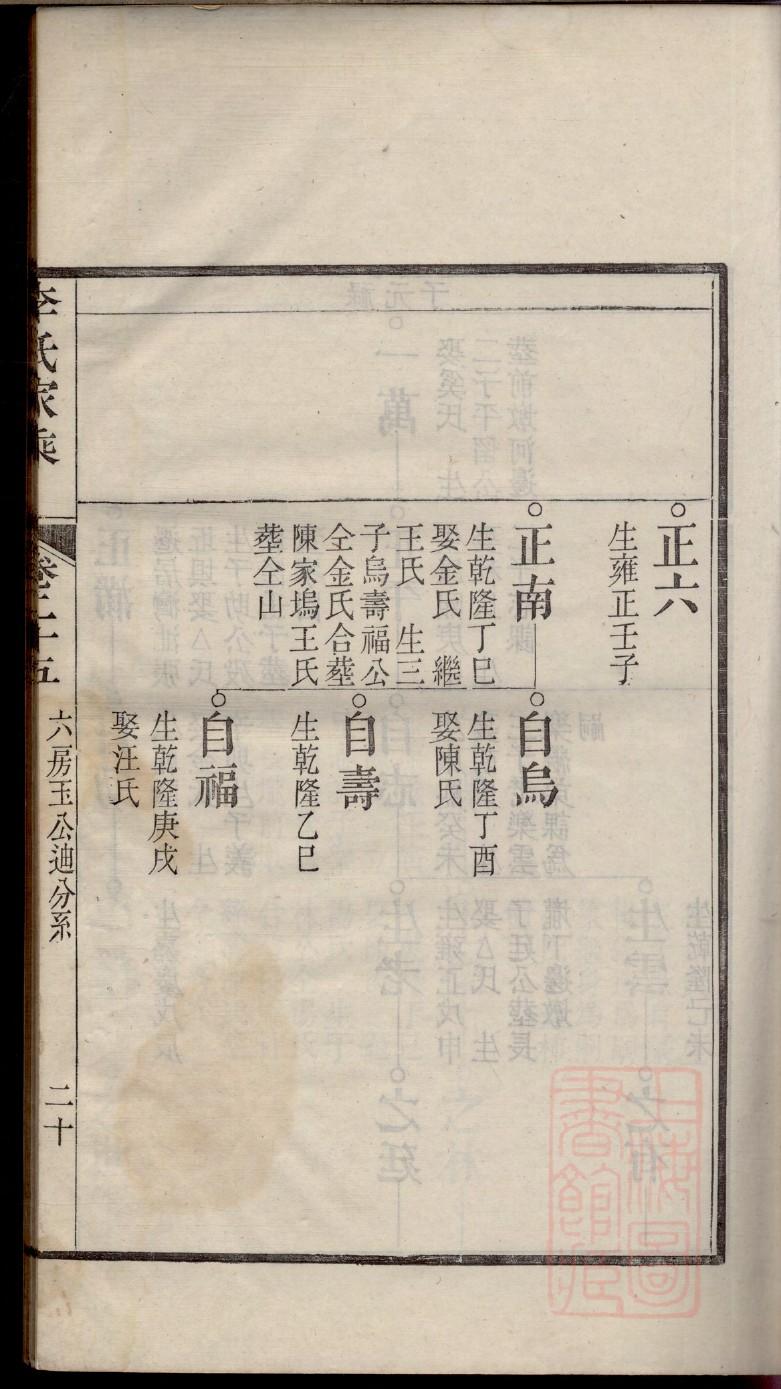 正六
生雍正壬子
正南
生乾隆丁巳
娶金氏 繼
王氏 生三
子烏壽福公
仝金氏合塟
陳家塢王氏
塟仝山
自烏
生乾隆丁酉
娶陳氏
自壽
生乾隆乙巳
自福
生乾隆庚戌
娶汪氏
李氏家乘
卷二十五
六房玉公迪分系
二十
上海圖書館藏